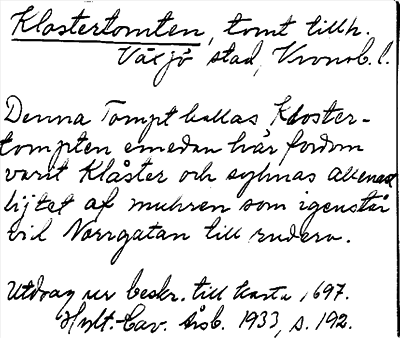 Klostertomten, tomt tillh.
Växjö stad, Kronob. l.
Denna Tompt kallas Kloster-
tompten emedan här fordom
varit Klåster och syhnas allenast
lijtet af muhren som igenstår
vid Norrgatan till rudera.
Utdrag ur beskr. till karta 1697.
Hylt.-Cav. Årsb. 1933, s. 192.